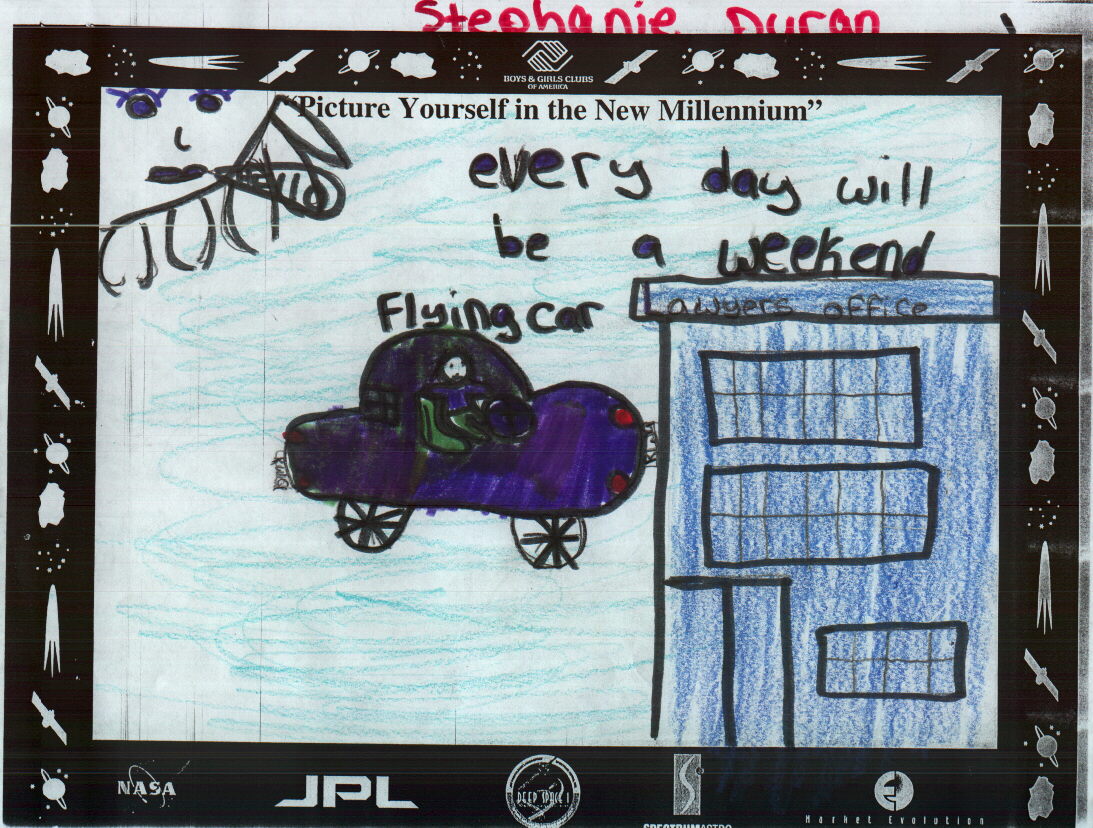 Stephanie Duran
BOYS & GIRLS CLUBS
OF AMERICA
“Picture Yourself in the New Millennium”
every day will
be a weekend
Flying car
Lawyers office
NASA
JPL
DEEP SPACE 1
SPECTRUMASTRO
Market Evolution